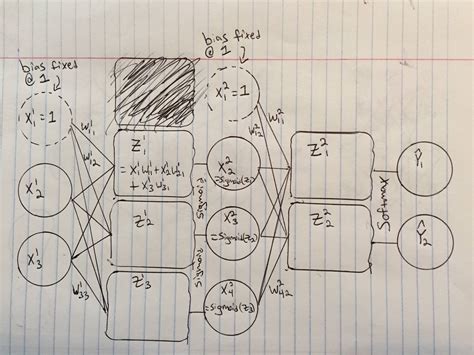 bias fixed
@ 1
X₁¹ = 1
X₂¹
X₃¹
W₁₁¹
W₁₂¹
W₃₃¹
Z₁¹
= X₁¹W₁₁¹ + X₂¹W₂₁¹
+ X₃¹W₃₁¹
Z₂¹
Z₃¹
Sigmoid
Sigmoid
bias fixed
@ 1
X₁² = 1
X₂²
=Sigmoid(Z₁)
X₃²
=Sigmoid(Z₂)
X₄²
=Sigmoid(Z₃)
W₁₁²
W₁₂²
W₄₂²
Z₁²
Z₂²
Softmax
Ŷ₁
Ŷ₂